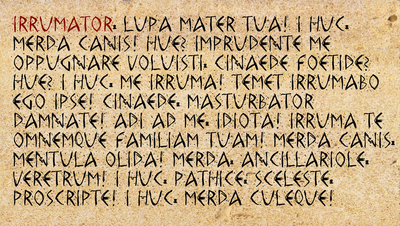 IRRUMATOR. LUPA MATER TUA! I HUC.
MERDA CANIS! HUE? IMPRUDENTE ME
OPPUGNARE VOLUISTI. CINAEDE FOETIDE?
HUE? I HUC. ME IRRUMA! TEMET IRRUMABO
EGO IPSE! CINAEDE. MASTURBATOR
DAMNATE! ADI AD ME. IDIOTA! IRRUMA TE
OMNEMQUE FAMILIAM TUAM! MERDA CANIS.
MENTULA OLIDA! MERDA. ANCILLARIOLE.
VERETRUM! I HUC. PATHICE. SCELESTE.
PROSCRIPTE! I HUC. MERDA CULEQUE!